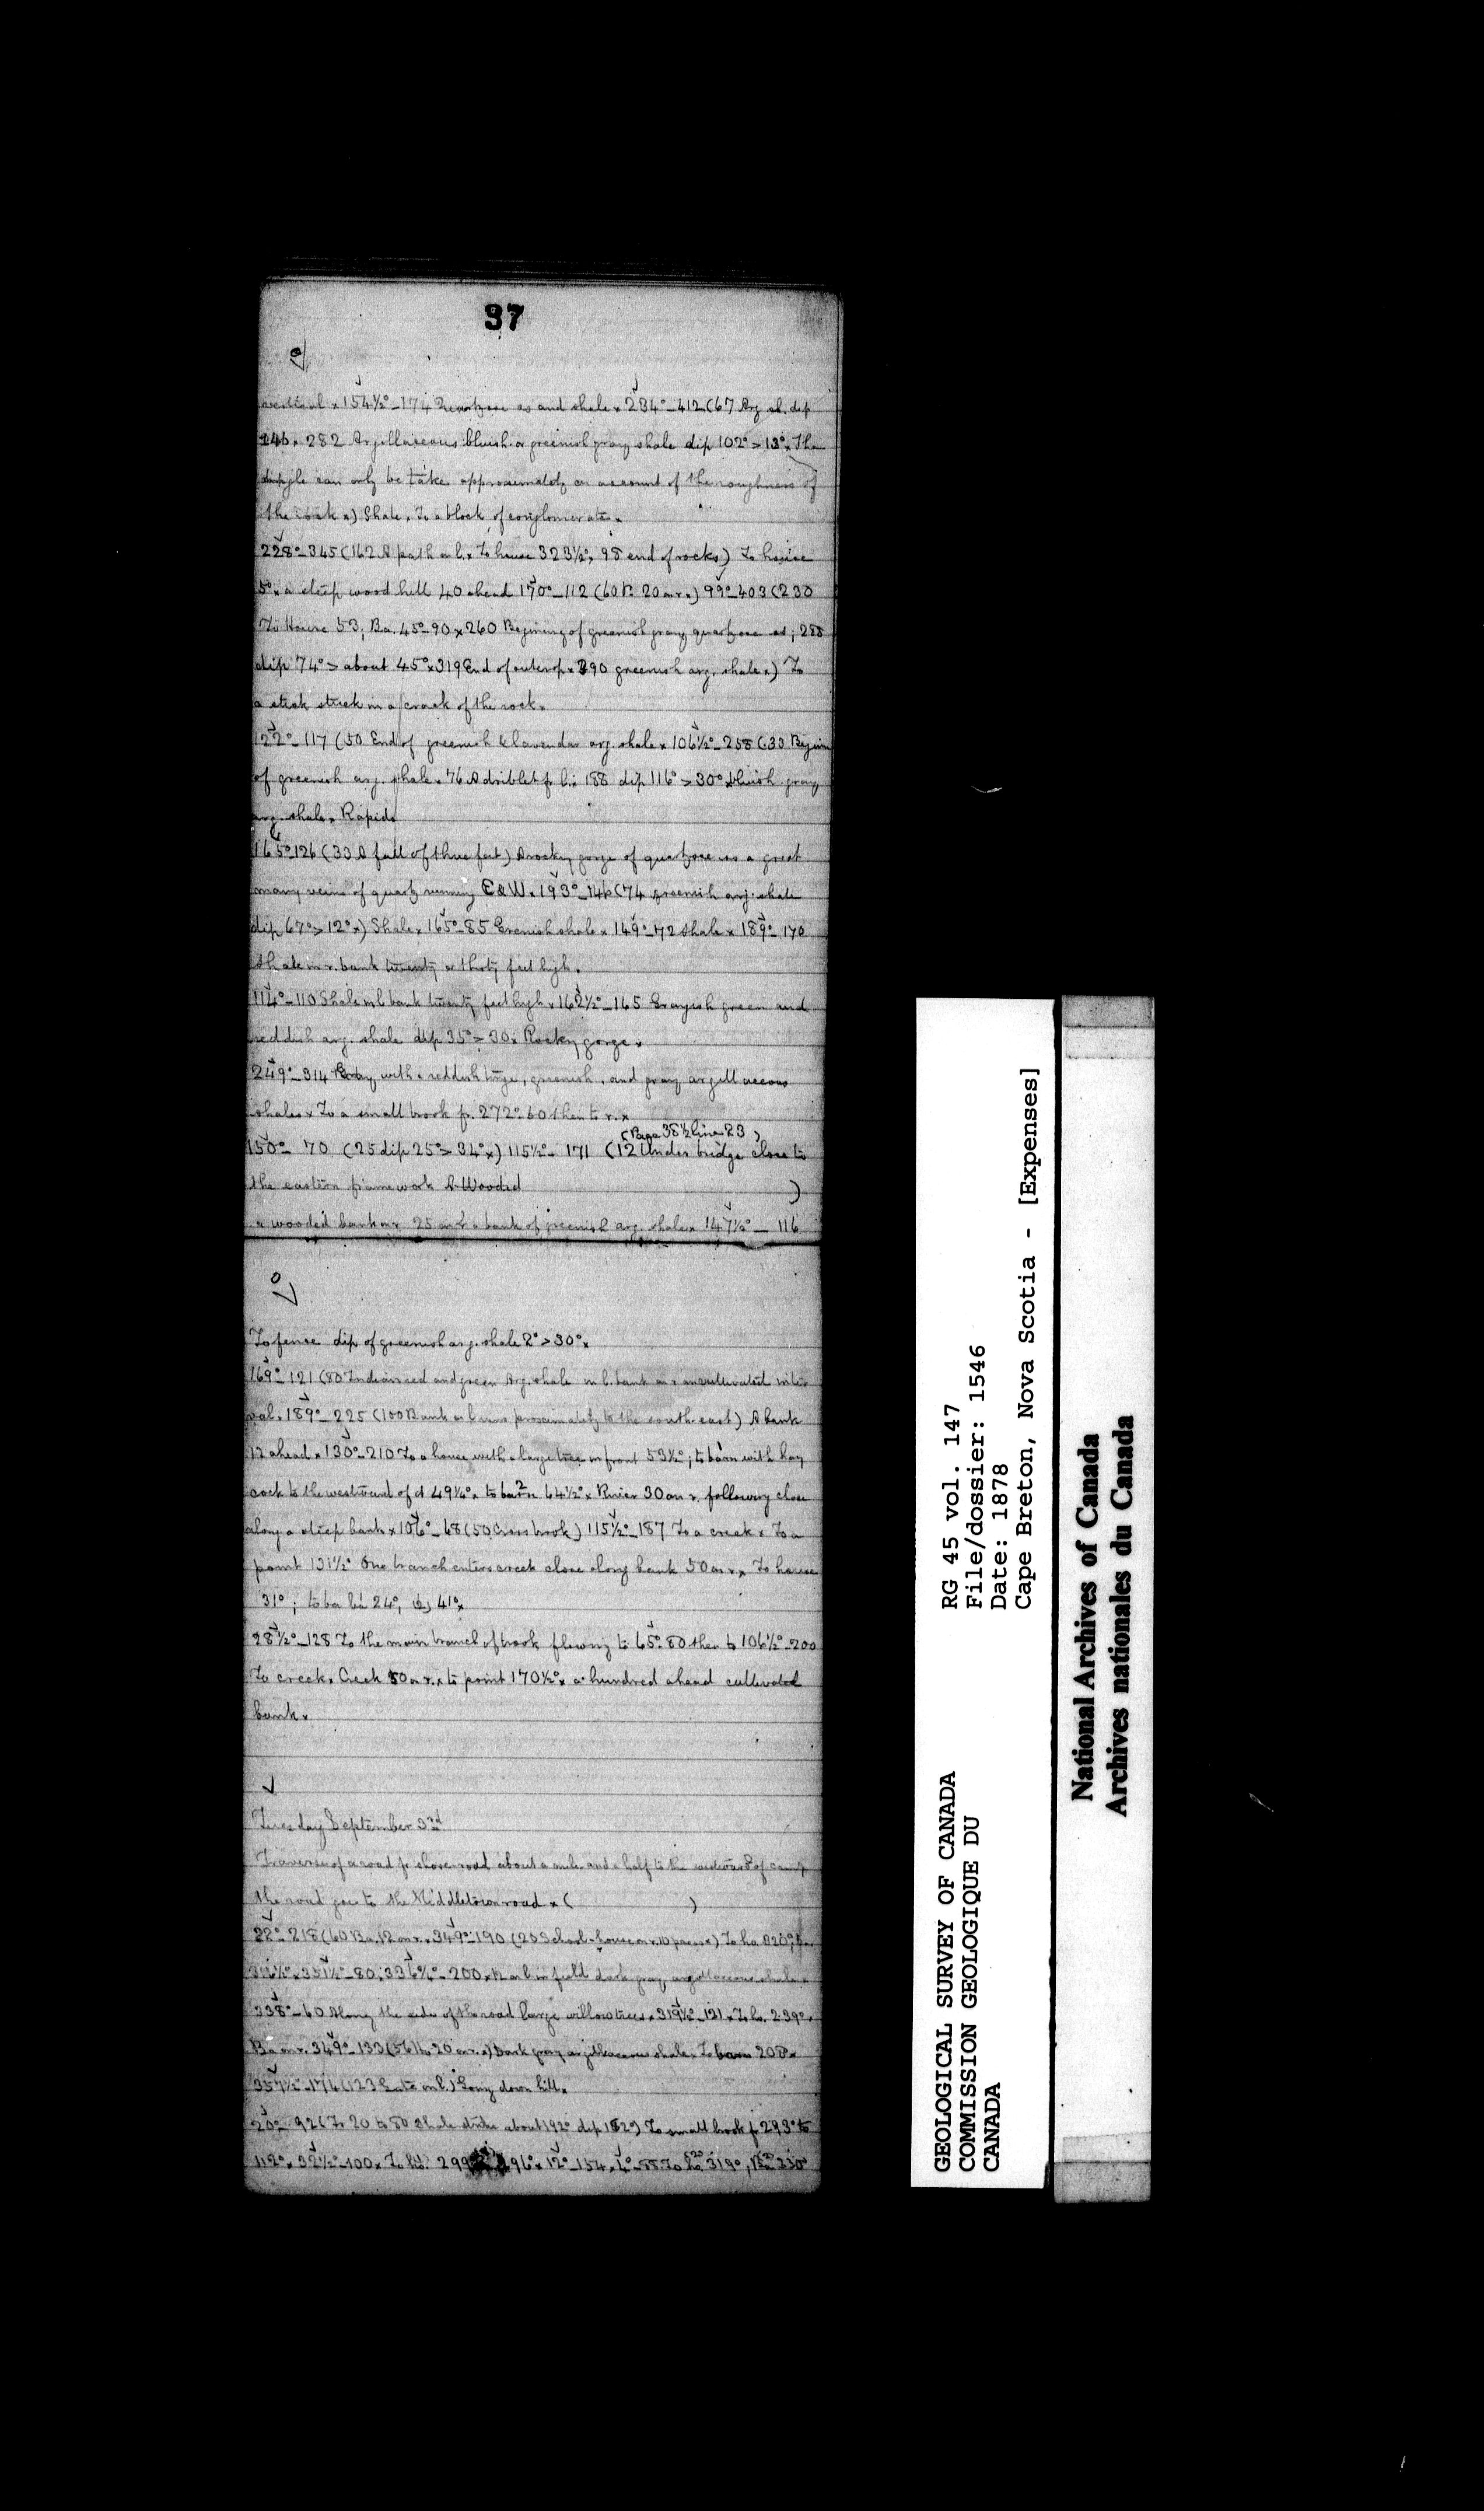 37
vertical x 154½°_174 Quartzose ss and shale x 234°_412 (67 Arg sh. dip
146 x 282 Argillaceous bluish or greenish gray shale dip 102° > 13° x The
can only be take approximately on account of the roughness of
the rock x) Shale x To a block of conglomerate x
228°_345 (162 A path on l. x To house 323½°, 98 end of rocks) To house
5° x a steep wood hill 40 ahead 170°_112 (60 20 on r. x) 99°_403 (230
To House 53, Ba. 45°_90 x 260 Begining of greenish gray quartzose ss; 288
dip 74° > about 45° x 319 End of outcrop x 390 greenish arg. shale x) To
a stick stuck in a crack of the rock x
122°_117 (50 End of greenish & lavendar arg. shale x 106½°_258 (30 Begin
of greenish arg. shale x 76 A driblet f. l.; 188 dip 116° > 30° x bluish gray
arg. shale x Rapids
165°_126 (33 A fall of three feet) A rocky gorge of quartzose ss a great
many veins of quartz running E & W x 193°_146 (74 greenish arg. shale
dip 67° > 12° x) Shale x 165°_85 Grenish shale x 149°_172 shale x 189°_170
Shale on r. bank twenty or thirty feet high x
114°_110 Shale on l bank twenty feet high x 162½°_165 Grayish green and
reddish arg. shale dip 35° > 30 x Rocky gorge x
249°_314 Gray with a reddish tinge, greenish, and gray argillaceous
shales x To a small brook fr. 272°_60 then to r. x
(Page 38½ line 23)
150°_70 (25 dip 25° > 34° x) 115½°_171 (12 Under bridge close to
the eastern frame work A Wooded )
a wooded bank on r 25 on l a bank of greenish arg. shale x 147½°_116
To fence dip of greenish arg. shale 2° > 30° x
169°_121 (80 Indian red and green Arg. shale on l. bank on r an uncultivated inter
val x 189°_225 (100 Bank on l runs proximately to the south east) A bank
12 ahead x 130°_210 To a house with a large tree in front 53½°; to barn with hay
cock to the westward of it 49¼° x to barn 64½° x River 30 on r. following close
along a steep bank x 106°_68 (50 Cross brook) 115½°_187 To a creek x To a
point 131½° One branch enters creek close along bank 50 on r. x To house
31°; to ba 24°, (2) 41° x
98½°_128 To the main branch of brook flowing to 65°_80 then to 106½°_200
To creek x Creek 50 on r. x to point 170½° x a hundred ahead cultivated
bank x
Tuesday September 3rd
Traverse of a road fr shore road about a mile and a half to the westward of camp
the road goes to the Middletown road x ( )
22°_218 (60 Ba. 12 on r. x 349°_190 (20 School-house on r. 10 paces x) To ho. 320°,
316½° x 331½°_80; 336¾°_200 x on l. in field dark gray argillaceous shale x
338°_60 Along the side of the road large willow trees x 319½°_121 x To ho. 239° x
Ba. on r. 349°_133 (56 Ho. 20 on r. x) Dark gray argillaceous shale x To barn 208 x
357½°_176 (123 Gate on l.) Going down hill x
20°_92 (Fr 20 to 80 Shale strike about 192° dip 182°) To small brook fr 293° to
112° x 32½°_100 x To 299 296° x 12°_154 x 4°_88 To ho 319°, Ba 330°
GEOLOGICAL SURVEY OF CANADA
COMMISSION GEOLOGIQUE DU
CANADA
RG 45 vol. 147
File/dossier: 1546
Date: 1878
Cape Breton, Nova Scotia - [Expenses]
National Archives of Canada
Archives nationales du Canada